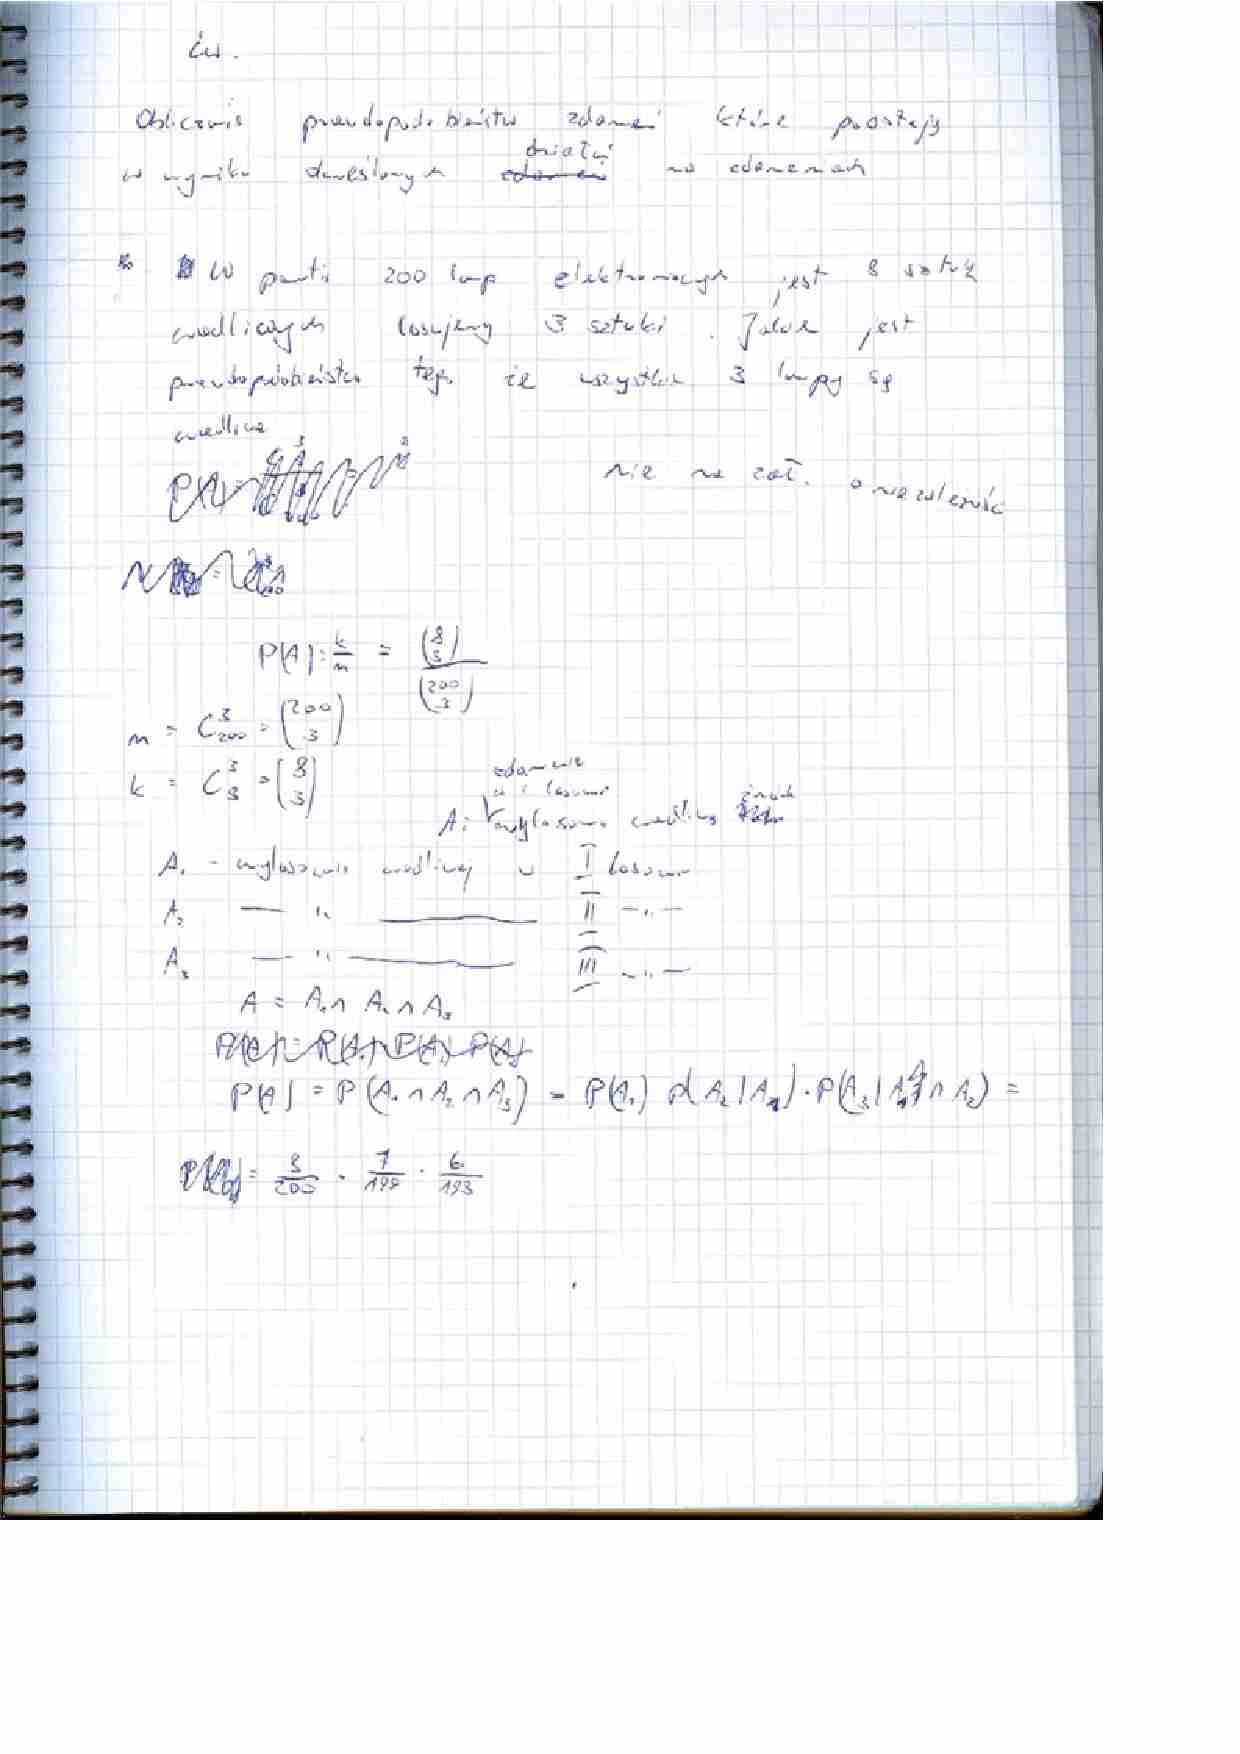 Ćw.
Obliczanie prawdopodobieństw zdarzeń które powstają
w wyniku określonych działań na zdarzeniach
W partii 200 lamp elektronowych jest 8 sztuk
wadliwych losujemy 3 sztuki. Jakie jest
prawdopodobieństwo tego że wszystkie 3 lampy są
wadliwe
nie ma zał. o niezależność
P(A) = k/n = (8 3)/(200 3)
n = C³₂₀₀ = (200 3)
k = C³₈ = (8 3)
zdarzenie
A: wylosowano wadliwą
A₁ - wylosowanie wadliwej w I losowaniu
A₂ — " — II — " —
A₃ — " — III — " —
A = A₁ ∩ A₂ ∩ A₃
P(A) = P(A₁ ∩ A₂ ∩ A₃) = P(A₁) P(A₂|A₁) · P(A₃|A₁ ∩ A₂) =
= 8/200 · 7/199 · 6/198